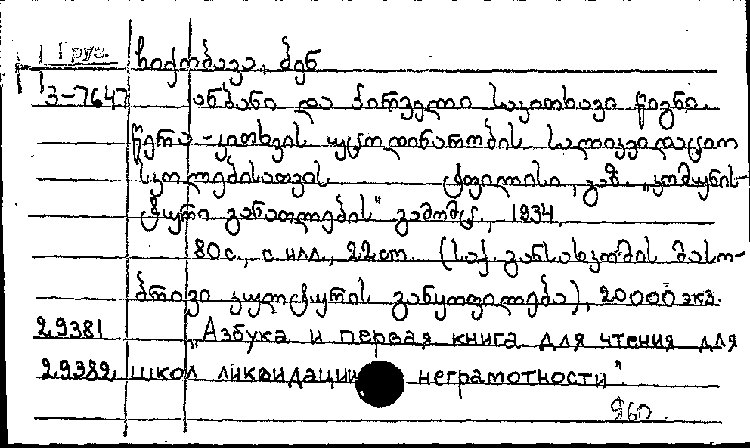 Груз. ჩიქობავა, ბენ
3-7647 ანბანი და პირველი საკითხავი წიგნი.
წერა-კითხვის უცოდინარობის სალიკვიდაციო
სკოლებისათვის ტფილისი, გაზ. „კომუნის-
ტური განათლების" გამომც., 1934.
80 с., с илл., 22 см. (საქ. განსახკომის მასო-
ბრივი კულტურის განყოფილება), 20000 экз.
29381 „Азбука и первая книга для чтения для
29382 школ ликвидации неграмотности".
960.